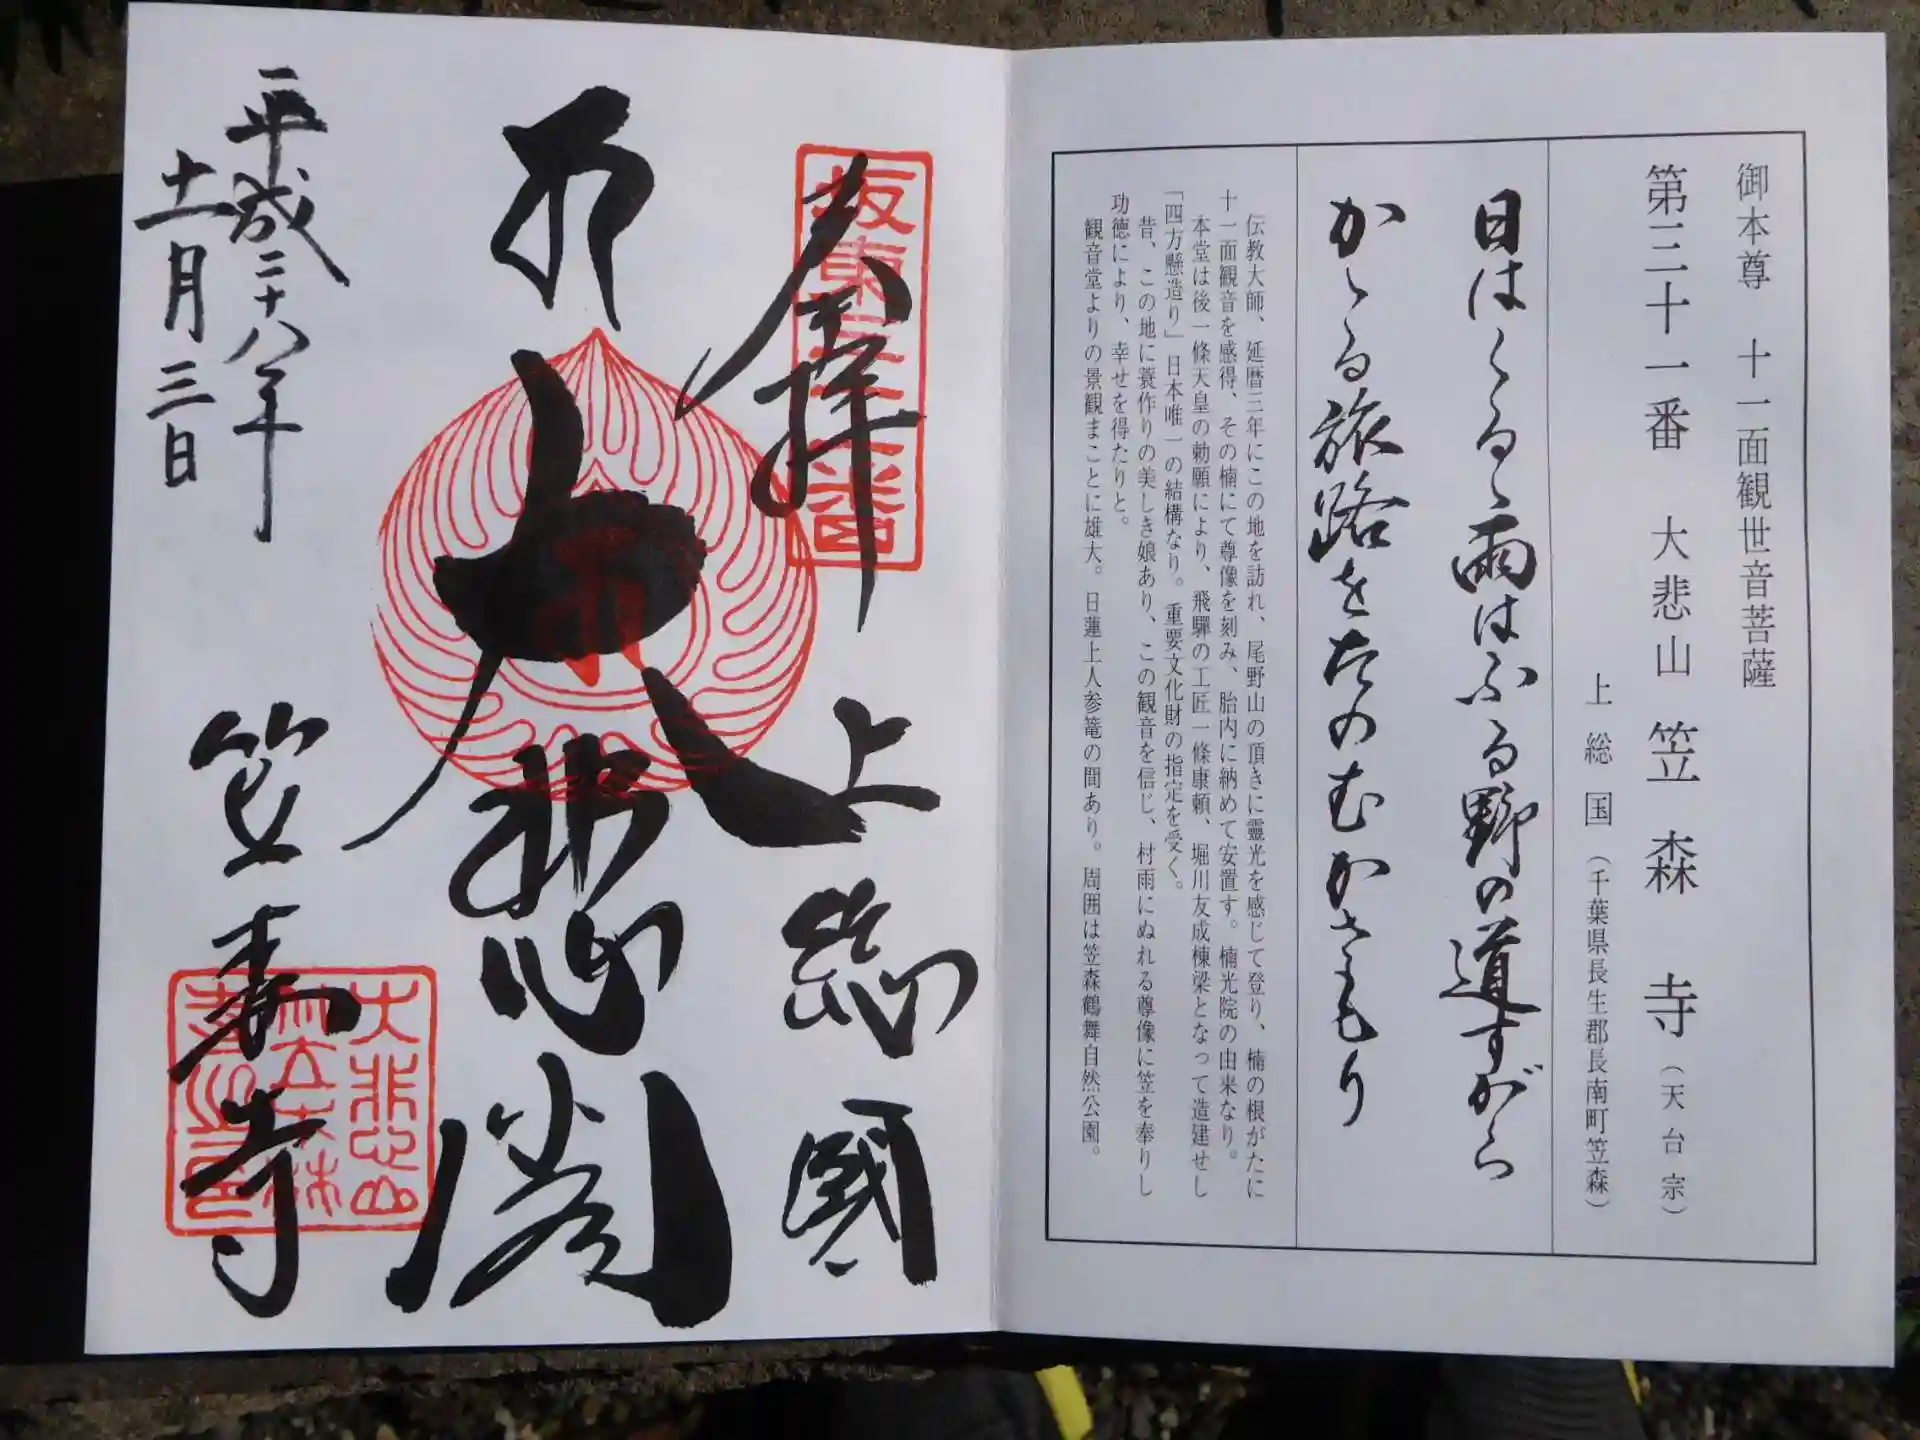 御本尊 十一面観世音菩薩
第三十一番 大悲山 笠森寺（天台宗）
上総国（千葉県長生郡長南町笠森）
日はくるゝ雨はふる野の道すがら
かゝる旅路をたのむかさもり
伝教大師、延暦三年にこの地を訪れ、尾野山の頂きに靈光を感じて登り、楠の根がたに
十一面観音を感得、その楠にて尊像を刻み、胎内に納めて安置す。楠光院の由来なり。
本堂は後一條天皇の勅願により、飛驒の工匠一條康頼、堀川友成棟梁となって造建せし
「四方懸造り」日本唯一の結構なり。重要文化財の指定を受く。
昔、この地に蓑作りの美しき娘あり、この観音を信じ、村雨にぬれる尊像に笠を奉りし
功徳により、幸せを得たりと。
観音堂よりの景観まことに雄大。日蓮上人参篭の間あり。周囲は笠森鶴舞自然公園。
奉拝
上総國
大悲閣
平成二十八年
十一月三日
笠森寺
坂東三十一番
大悲山
笠森
寺之印